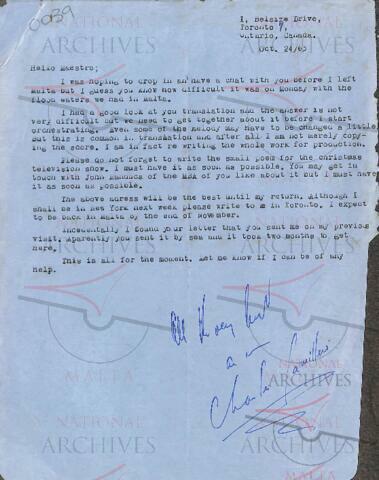 0039
1, Belsize Drive,
Toronto 7,
Ontario, Canada.
Oct. 24/65
Hello Maestro;
I was hoping to drop in an have a chat with you before I left
Malta but I guess you know how difficult it was on Monday with the
flood waters we had in Malta.
I had a good look at you translation and the answer is not
very difficult but we need to get together about it before I start
orchestrating. Even some of the melody may have to be changed a little
but this is common in translation and after all I am not merely cop-
ying the score. I am in fact re writing the whole work for production.
Please do not forget to write the small poem for the christmas
television show. I must have it as soon as possible. You may get in
touch with John Manduca of the MBA of you like about it but I must have
it as soon as possible.
The above adress will be the best until my return. Although I
shall be in New York next week please write to me in Toronto. I expect
to be back in Malta by the end of November.
Incidentally I found your letter that you sent me on my previous
visit. Aparently you sent it by sea and it took two months to get
here.
This is all for the moment. Let me know if I can be of any
help.
Charles Camilleri
NATIONAL
ARCHIVES
MALTA